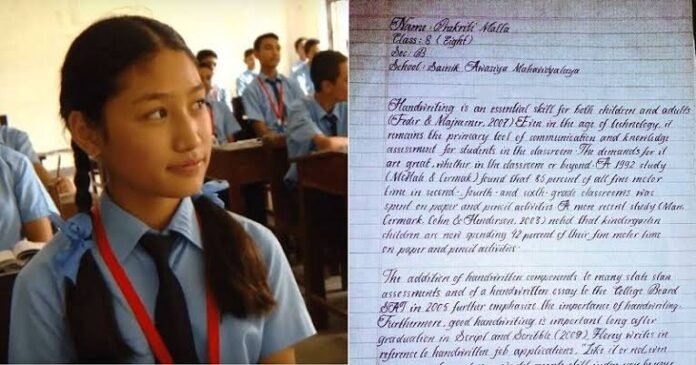 Name : Prakriti Malla
Class : 8 (Eight)
Sec : B
School : Sainik Awasiya Mahavidyalaya
Handwriting is an essential skill for both children and adults
(Feder & Majnemer, 2007) Even in the age of technology, it
remains the primary tool of communication and knowledge
assessment for students in the classroom The demands for it
are great, whether in the classroom or beyond. A 1992 study
(McHale & Cermak) found that 85 percent of all fine motor
time in second- fourth- and sixth- grade classrooms was
spent on paper and pencil activities A more recent study (Marr,
Cermack, Cohn & Henderson, 2003) noted that kindergarten
children are now spending 42 percent of their fine motor time
on paper and pencil activities
The addition of handwritten components to many state
assessments and of a handwritten essay to the College Board
SAT in 2005 further emphasize the importance of handwriting.
Furthermore, good handwriting is important long after
graduation in Script and Scribble (2009), Florey writes in
reference to handwritten job applications, "Like it or not, even